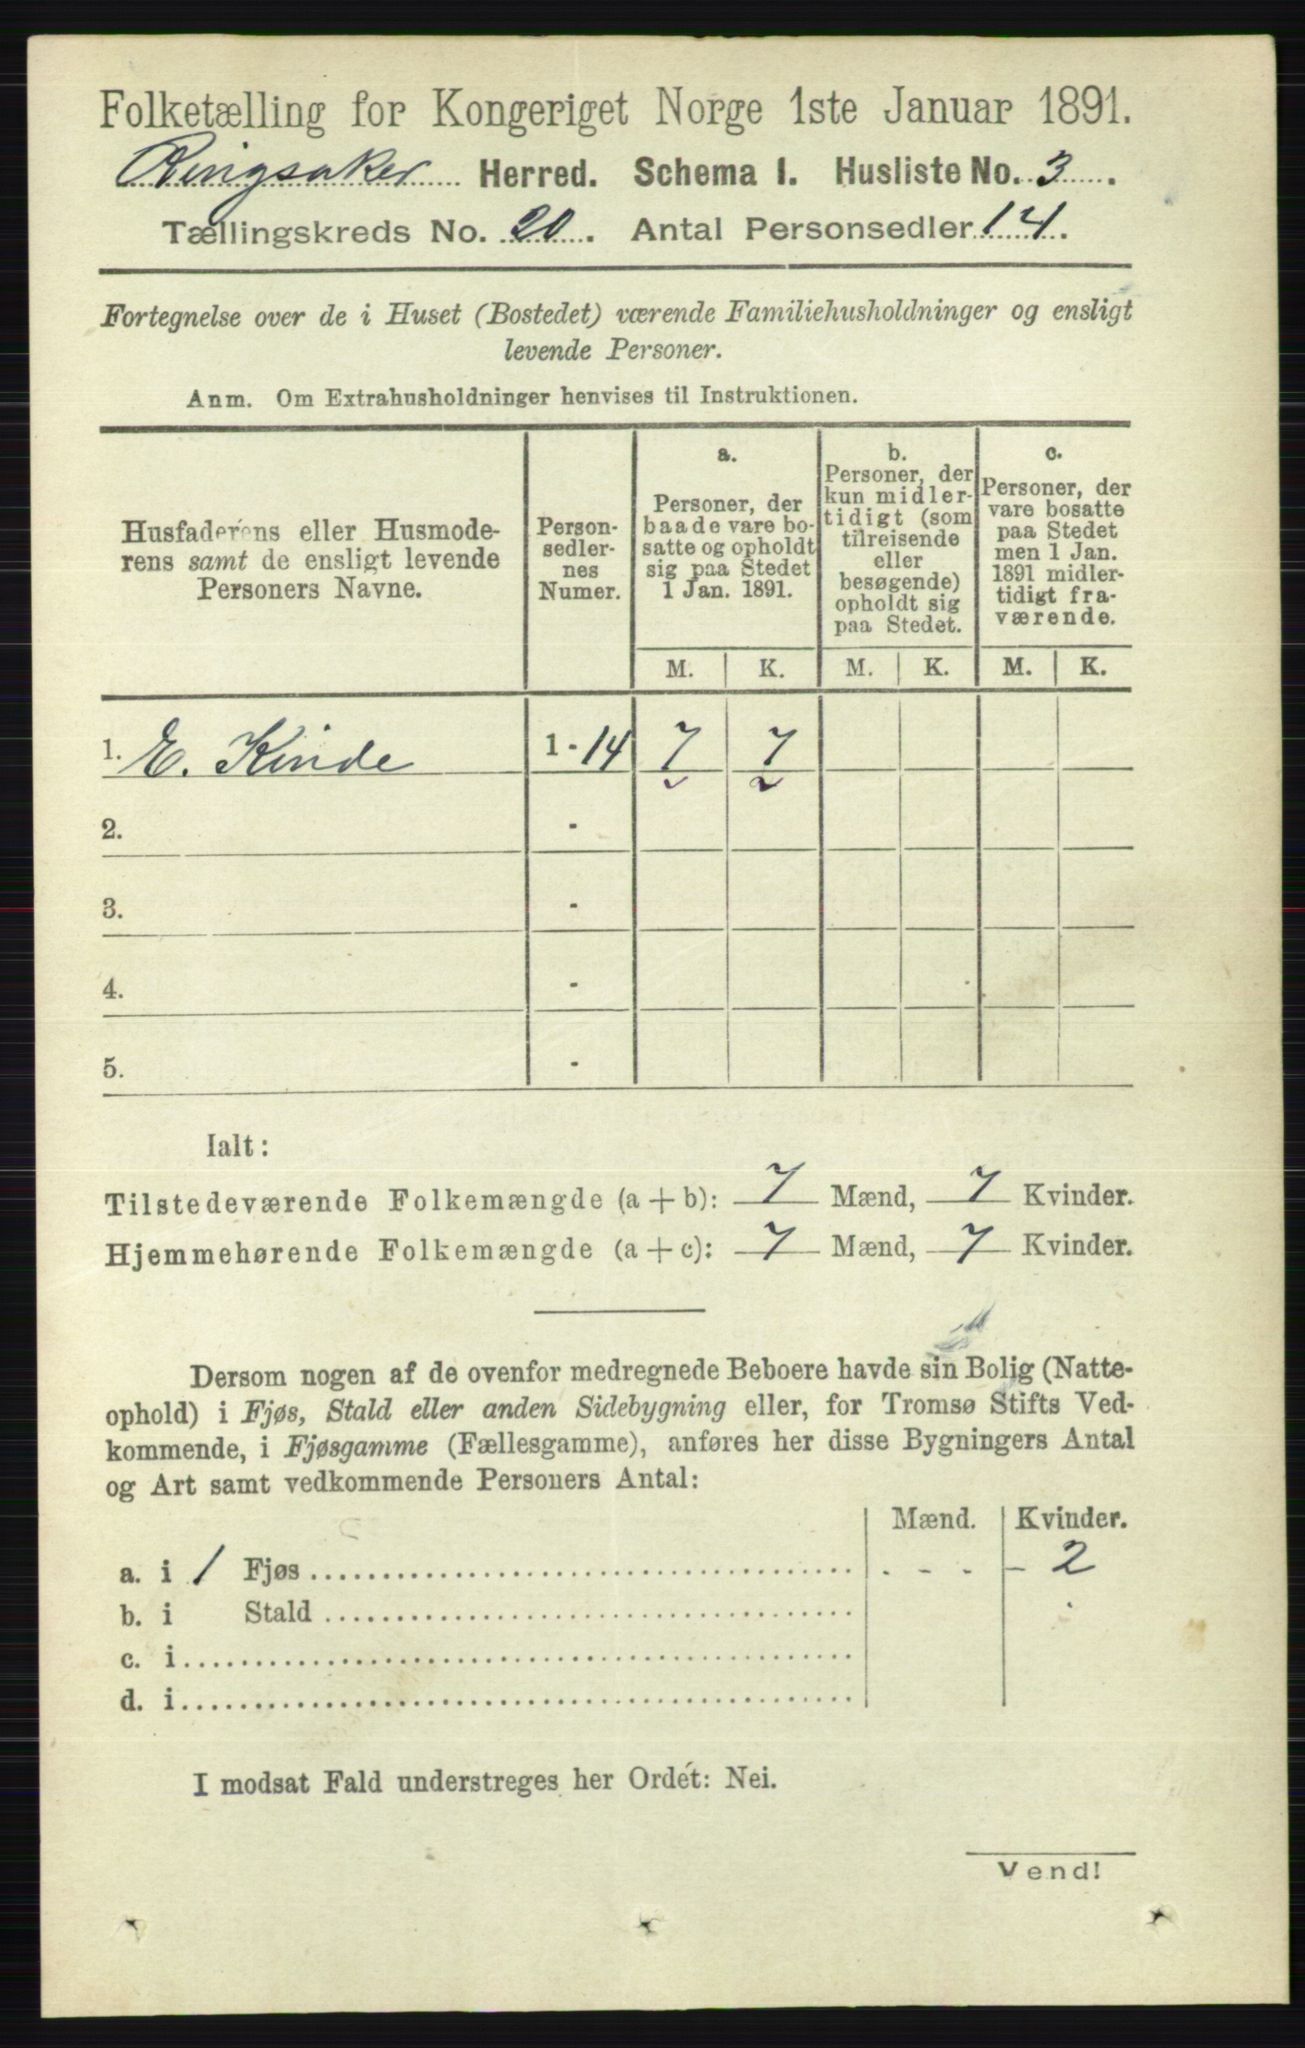 Folketælling for Kongeriget Norge 1ste Januar 1891.
Ringsaker Herred. Schema I. Husliste No. 3.
Tællingskreds No. 20. Antal Personsedler 14.
Fortegnelse over de i Huset (Bostedet) værende Familiehusholdninger og ensligt
levende Personer.
Anm. Om Extrahusholdninger henvises til Instruktionen.
Husfaderens eller Husmode-
rens samt de ensligt levende
Personers Navne.
Person-
sedler-
nes
Numer.
a.
Personer, der
baade vare bo-
satte og opholdt
sig paa Stedet
1 Jan. 1891.
b.
Personer, der
kun midler-
tidigt (som
tilreisende
eller
besøgende)
opholdt sig
paa Stedet.
c.
Personer, der
vare bosatte
paa Stedet
men 1 Jan.
1891 midler-
tidigt fra-
værende.
M. K. M. K. M. K.
1. E. Kinde 1 - 14 7 7
2. -
3. -
4. -
5. -
Ialt:
Tilstedeværende Folkemængde (a + b): 7 Mænd, 7 Kvinder.
Hjemmehørende Folkemængde (a + c): 7 Mænd, 7 Kvinder.
Dersom nogen af de ovenfor medregnede Beboere havde sin Bolig (Natte-
ophold) i Fjøs, Stald eller anden Sidebygning eller, for Tromsø Stifts Ved-
kommende, i Fjøsgamme (Fællesgamme), anføres her disse Bygningers Antal
og Art samt vedkommende Personers Antal:
Mænd. Kvinder.
a. i 1 Fjøs - - - - 2
b. i Stald
c. i
d. i
I modsat Fald understreges her Ordet: Nei.
Vend!